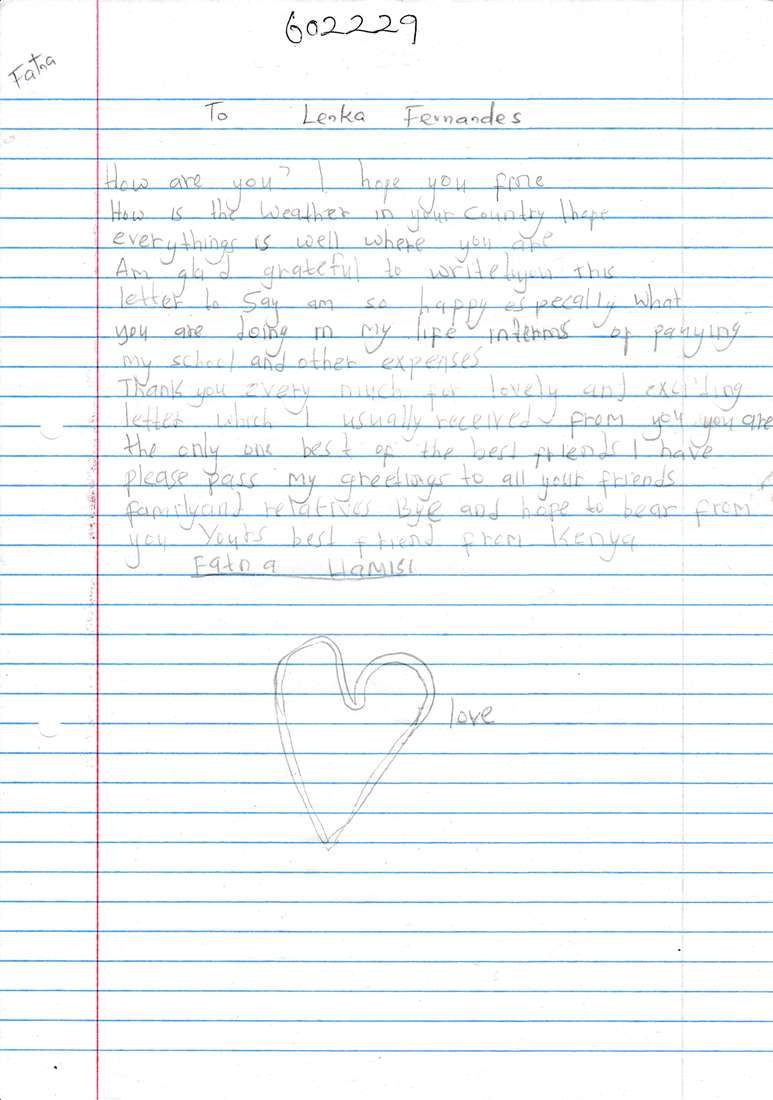 602229
Fatna
To Lenka Fernandes
How are you? I hope you fine
How is the weather in your Country Ihope
everythings is well where you are
Am glad grateful to writetoyou this
letter to Say am so happy especally what
you are doing in my life interms of panying
my school and other expenses
Thank you every much for lovely and exciiding
letter which I usually received from you you are
the only one best of the best friends I have
please pass my greetings to all your friends
familyand relatives Bye and hope to hear from
you Yours best friend from Kenya
Fatna HaMISI
love